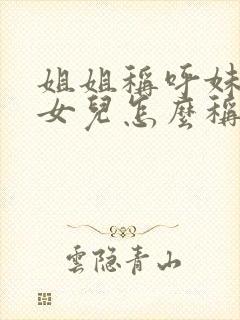 姐姐稱呼妹
女兒怎麼稱
雲隐青山